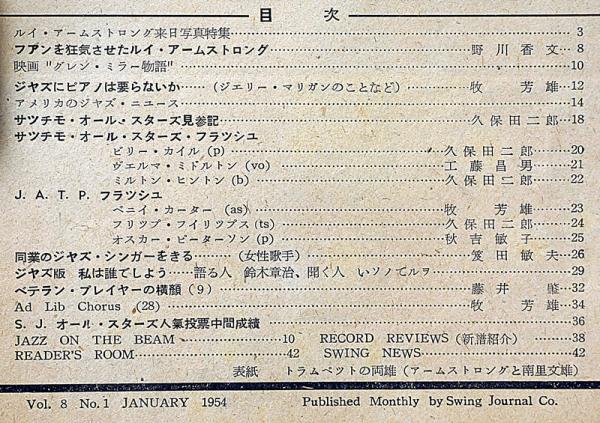 目 次
ルイ・アームストロング来日写真特集 3
フアンを狂気させたルイ・アームストロング 野川香文 8
映画"グレン・ミラー物語" 10
ジャズにピアノは要らないか……(ジエリー・マリガンのことなど) 牧芳雄 12
アメリカのジャズ・ニユース 14
サツチモ・オール・スターズ見参記 久保田二郎 18
サツチモ・オール・スターズ・フラツシユ
ビリー・カイル (p) 久保田二郎 20
ヴエルマ・ミドルトン (vo) 工藤昌男 21
ミルトン・ヒントン (b) 久保田二郎 22
J. A. T. P. フラツシユ
ベニイ・カーター (as) 牧芳雄 23
フリツプ・フイリツプス (ts) 久保田二郎 24
オスカー・ピーターソン (p) 秋吉敏子 25
同業のジャズ・シンガーをきる……(女性歌手) 笈田敏夫 26
ジャズ版 私は誰でしよう……語る人 鈴木章治、聞く人 いソノてルヲ 29
ベテラン・プレイヤーの横顔 (9) 藤井肇 32
Ad Lib Chorus (28) 牧芳雄 34
S. J. オール・スターズ人氣投票中間成績 36
JAZZ ON THE BEAM 10 RECORD REVIEWS (新譜紹介) 38
READER'S ROOM 42 SWING NEWS 42
表紙 トラムペツトの両雄 (アームストロングと南里文雄)
Vol. 8 No. 1 JANUARY 1954 Published Monthly by Swing Journal Co.